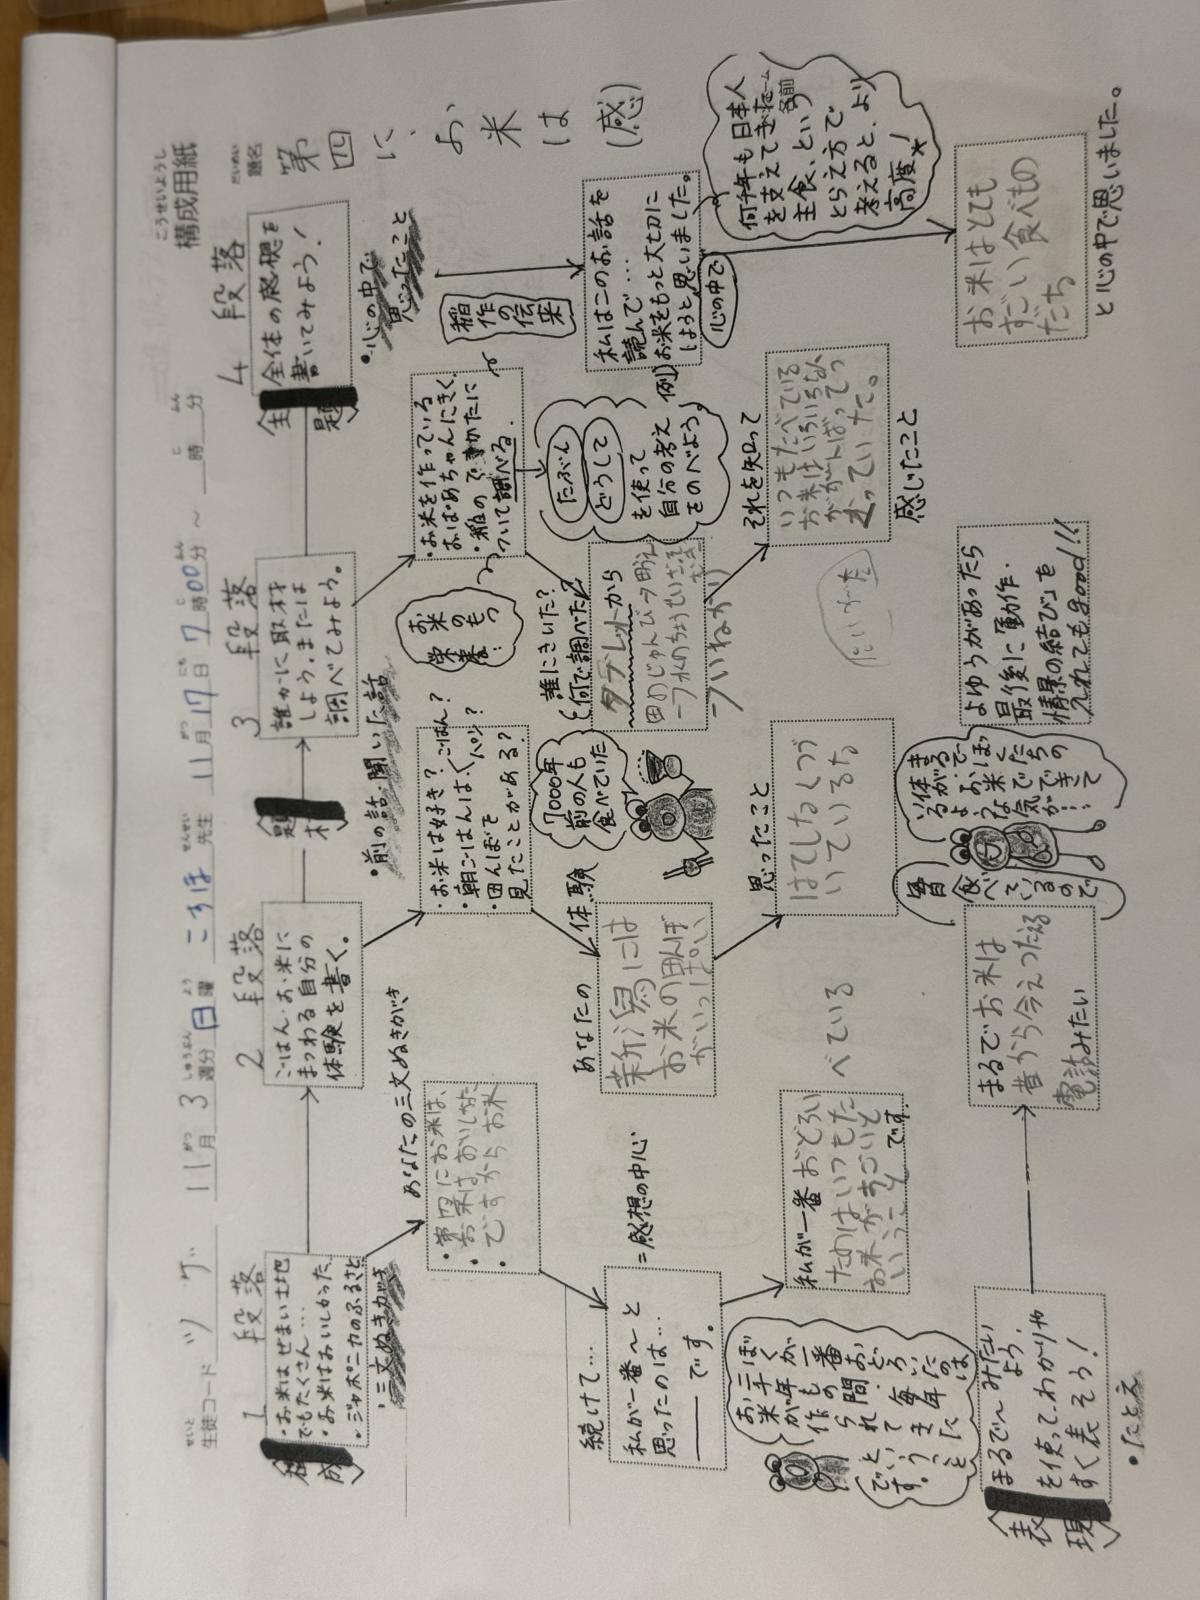 こうせいようし
構成用紙
だいめい
題名
第四に、お米は(感)
せいと
生徒コード
ツゲ
11月3週分
がつ
しゅうぶん
日曜
よう
こすほ先生
せんせい
11月17日7時00分~
がつ
にち
じ
ふん
時
分
1段落
構成
・お米はせまい土地
でもたくさん…
・お米はおいしかった
・ジャポニカのふるさと
・三文ぬきがき
あなたの三文ぬきがき
・第四にお米は、
続けて…
私が一番~と
思ったのは…
――です。
=感想の中心
私が一番おどろい
たのはいつもた
べている
お米がすごいと
いうこと
です。
ぼくが一番おどろいたのは
お米が年
表現
まるで~みたい
よう、
を使って、わかりや
すく表そう!
・たとえ
まるでお米は
昔から今えつたわる
電話みたい
2段落
ごはん・お米に
まつわる自分の
体験を書く。
題材
・前の話、聞いた話
・お米は好き?
・朝ごはんは、
ごはん?
パン?
・田んぼを
見たことがある?
7000年
前の人も
食べていた
あなたの体験
新潟には
お米の田んぼ
がいっぱい
思ったこと
はてしなくつづ
いているな
皆食べているので
まるで、ぼくたちの
体がお米でできて
いるような気が…
よゆうがあったら
最後に「動作・
情景の結び」を
入れてもgood!!
3段落
誰かに取材
しよう。または
調べてみよう。
・お米を作っている
おばあちゃんにきく。
・稲のでかたに
ついて調べる。
お米のもつ
栄養…
たぶん
どうして
を使って
自分の考え
をのべよう。
誰にきいた?
何で調べた?
タブレットから
田のじゅんび→田うえ
→いねかり
それを知って
いつもたべている
お米はいろいろな人
ががんばってつ
くっていた。
感じたこと
4段落
全題
全体の感想を
書いてみよう!
・心の中で
思ったこと
稲作の伝来
例)
私はこのお話を
読んで…
お米をもっと大切に
しようと思いました。
心の中で
何千年も日本人
を支えてきた
主食、という
名前
とらえ方で
考えると、より
高度!
お米はとても
すごい食べもの
だな
と心の中で思いました。